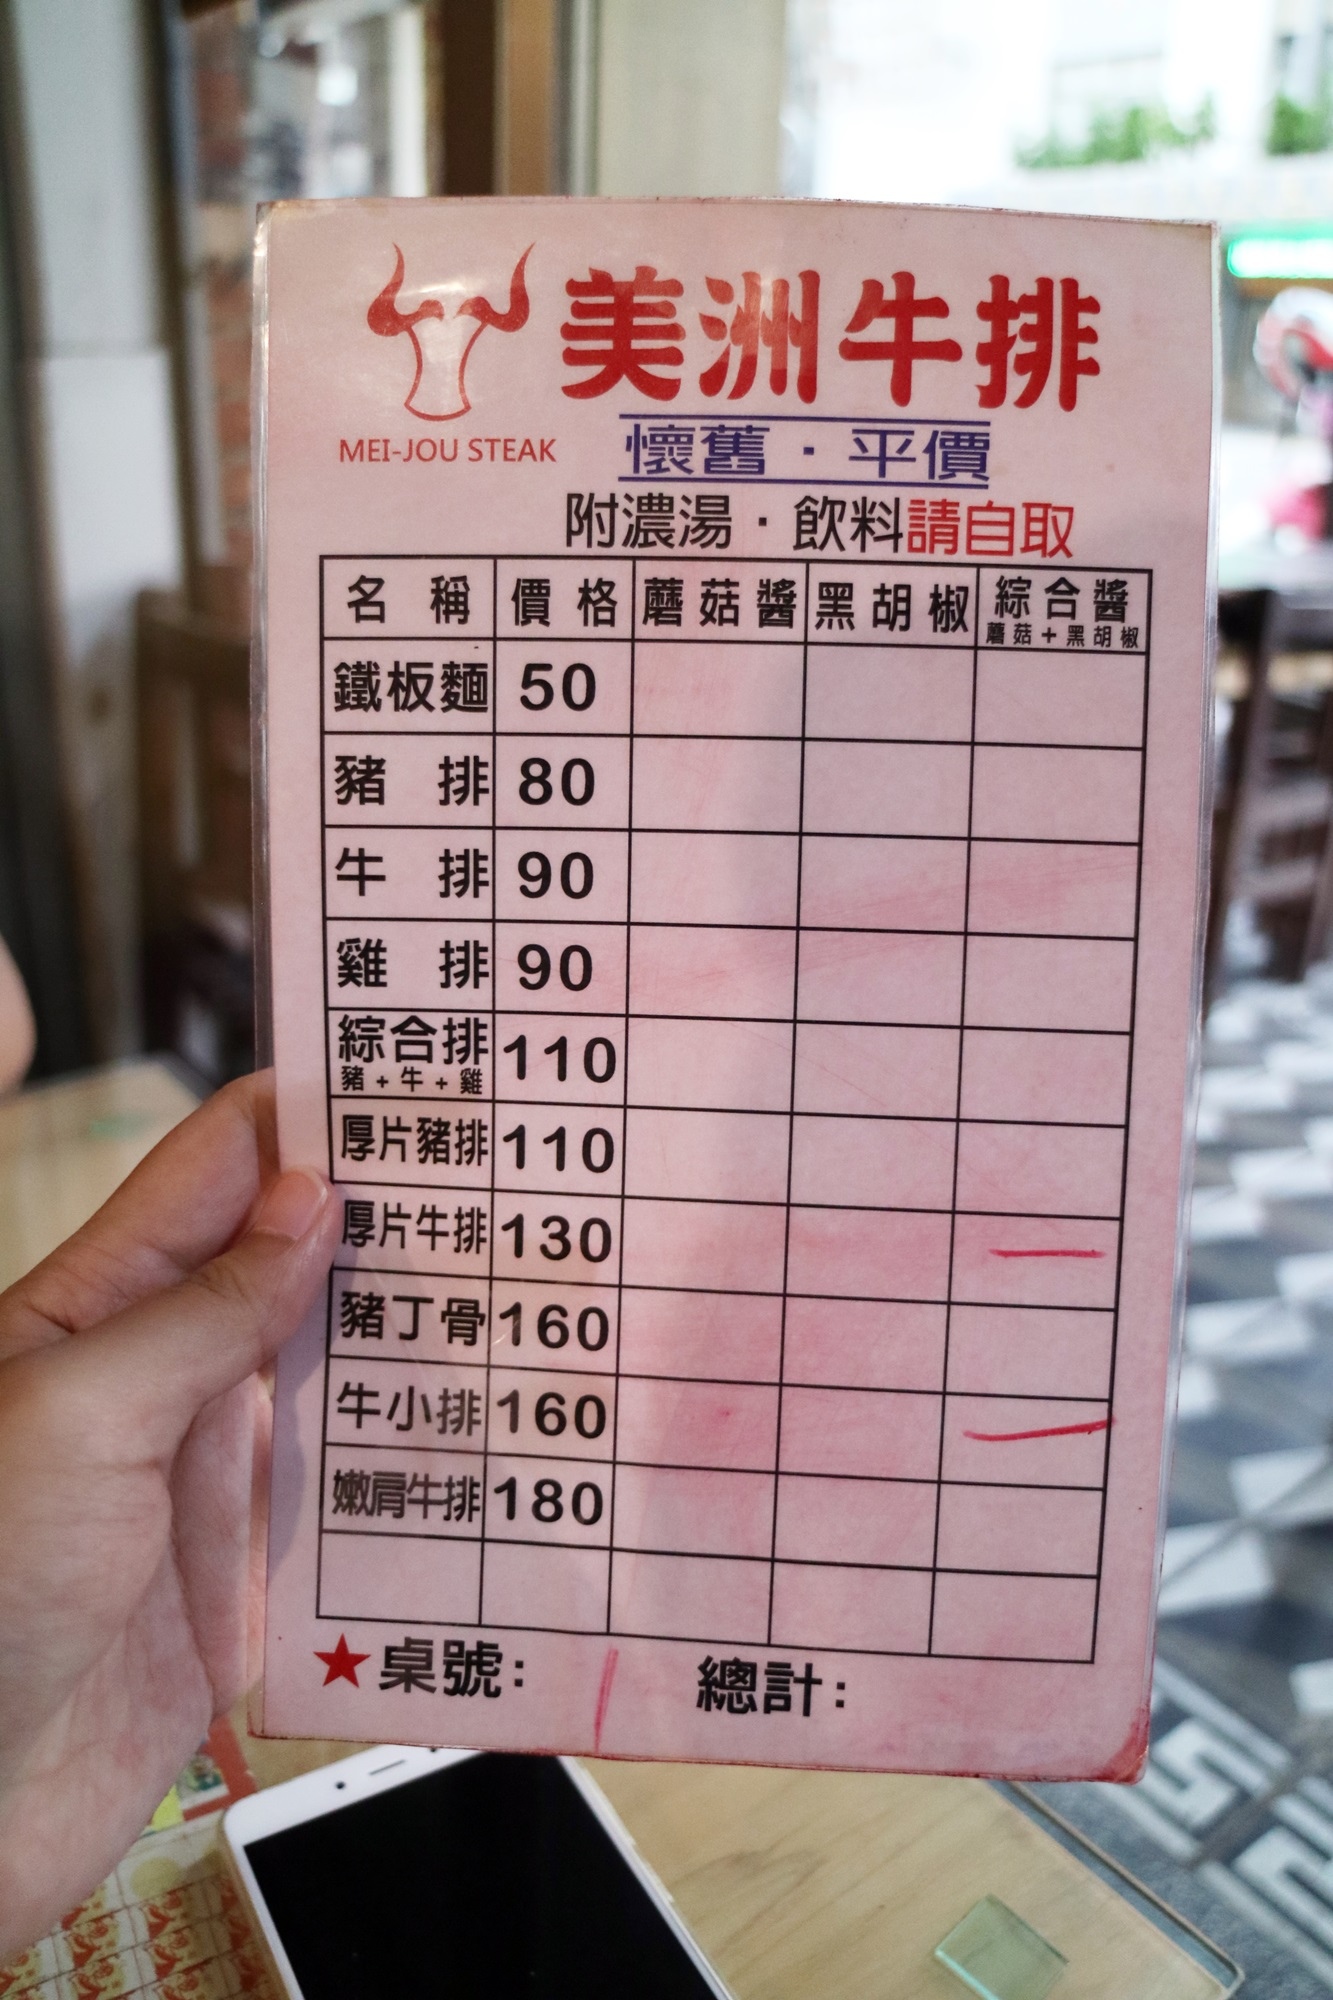 美洲牛排
MEI-JOU STEAK
懷舊·平價
附濃湯·飲料請自取
名稱 價格 蘑菇醬 黑胡椒 綜合醬
蘑菇+黑胡椒
鐵板麵 50
豬排 80
牛排 90
雞排 90
綜合排 110
豬+牛+雞
厚片豬排 110
厚片牛排 130
豬丁骨 160
牛小排 160
嫩肩牛排 180
★桌號: 總計: